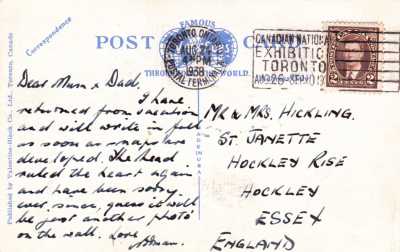 Correspondence
POST
FAMOUS
THROUGHOUT THE WORLD.
TORONTO, ONTARIO
AUG 25
4 PM
1938
POSTAL TERMINAL
CANADIAN NATIONAL
EXHIBITION
TORONTO
AUG. 26-SEP. 10
2
2
Published by Valentine-Black Co., Ltd., Toronto, Canada
Dear Mum & Dad,
I have
returned from vacation
and will write in full
as soon as snaps are
developed. The head
ruled the heart again
and have been sorry
ever since, guess it will
be just another photo
on the wall. Love
MR & MRS. HICKLING.
ST. JANETTE
HOCKLEY RISE
HOCKLEY
ESSEX
ENGLAND